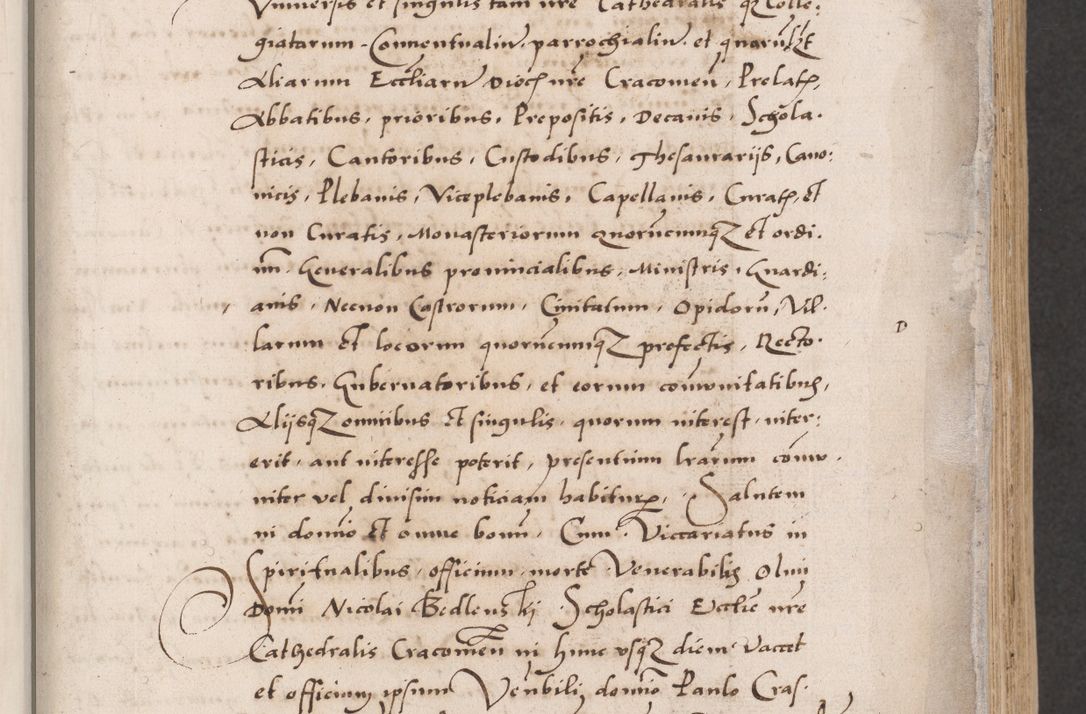 Vniuersis et singulis tam nre Cathedralis qz Colle:
giatarum. Conuentualiu. parrochialiu. et quarulzt
Aliarum Eccliaru Dioc nre Cracouien, Prelat,
Abbatibus, prioribus, Prepositis, Decanis, Schola.
sticis, Cantoribus, Custodibus, Thesaurarijs, Cano:
nicis, Plebanis, Viceplebanis, Capellanis, Curat, et
non Curatis, Monasteriorum quorucumqz et ordi.
nu. Generalibus prouincialibus, Ministris, Guardi:
anis, Necnon Castrorum, Ciuitatum, Opidoru, Vil.
larum et locorum quorucumqz prefectis, Recto.
ribus, Gubernatoribus, et eorum comunitatibus,
Alijsqz omnibus et singulis, quorum interest, inter:
erit, aut interesse poterit, presentium lrarum comu.
niter vel diuisim noticiam habitur, Salutem
in domio et omne bonu, Cum Viccariatus in
Spiritualibus, officium, morte Venerabilis Olim
Domi Nicolai Bedlenski Scholastici Ecclie nre
Cathedralis Cracouien in hunc vsqz diem vaccet
et officium ipsum Venbili domio Paulo Cras.
D